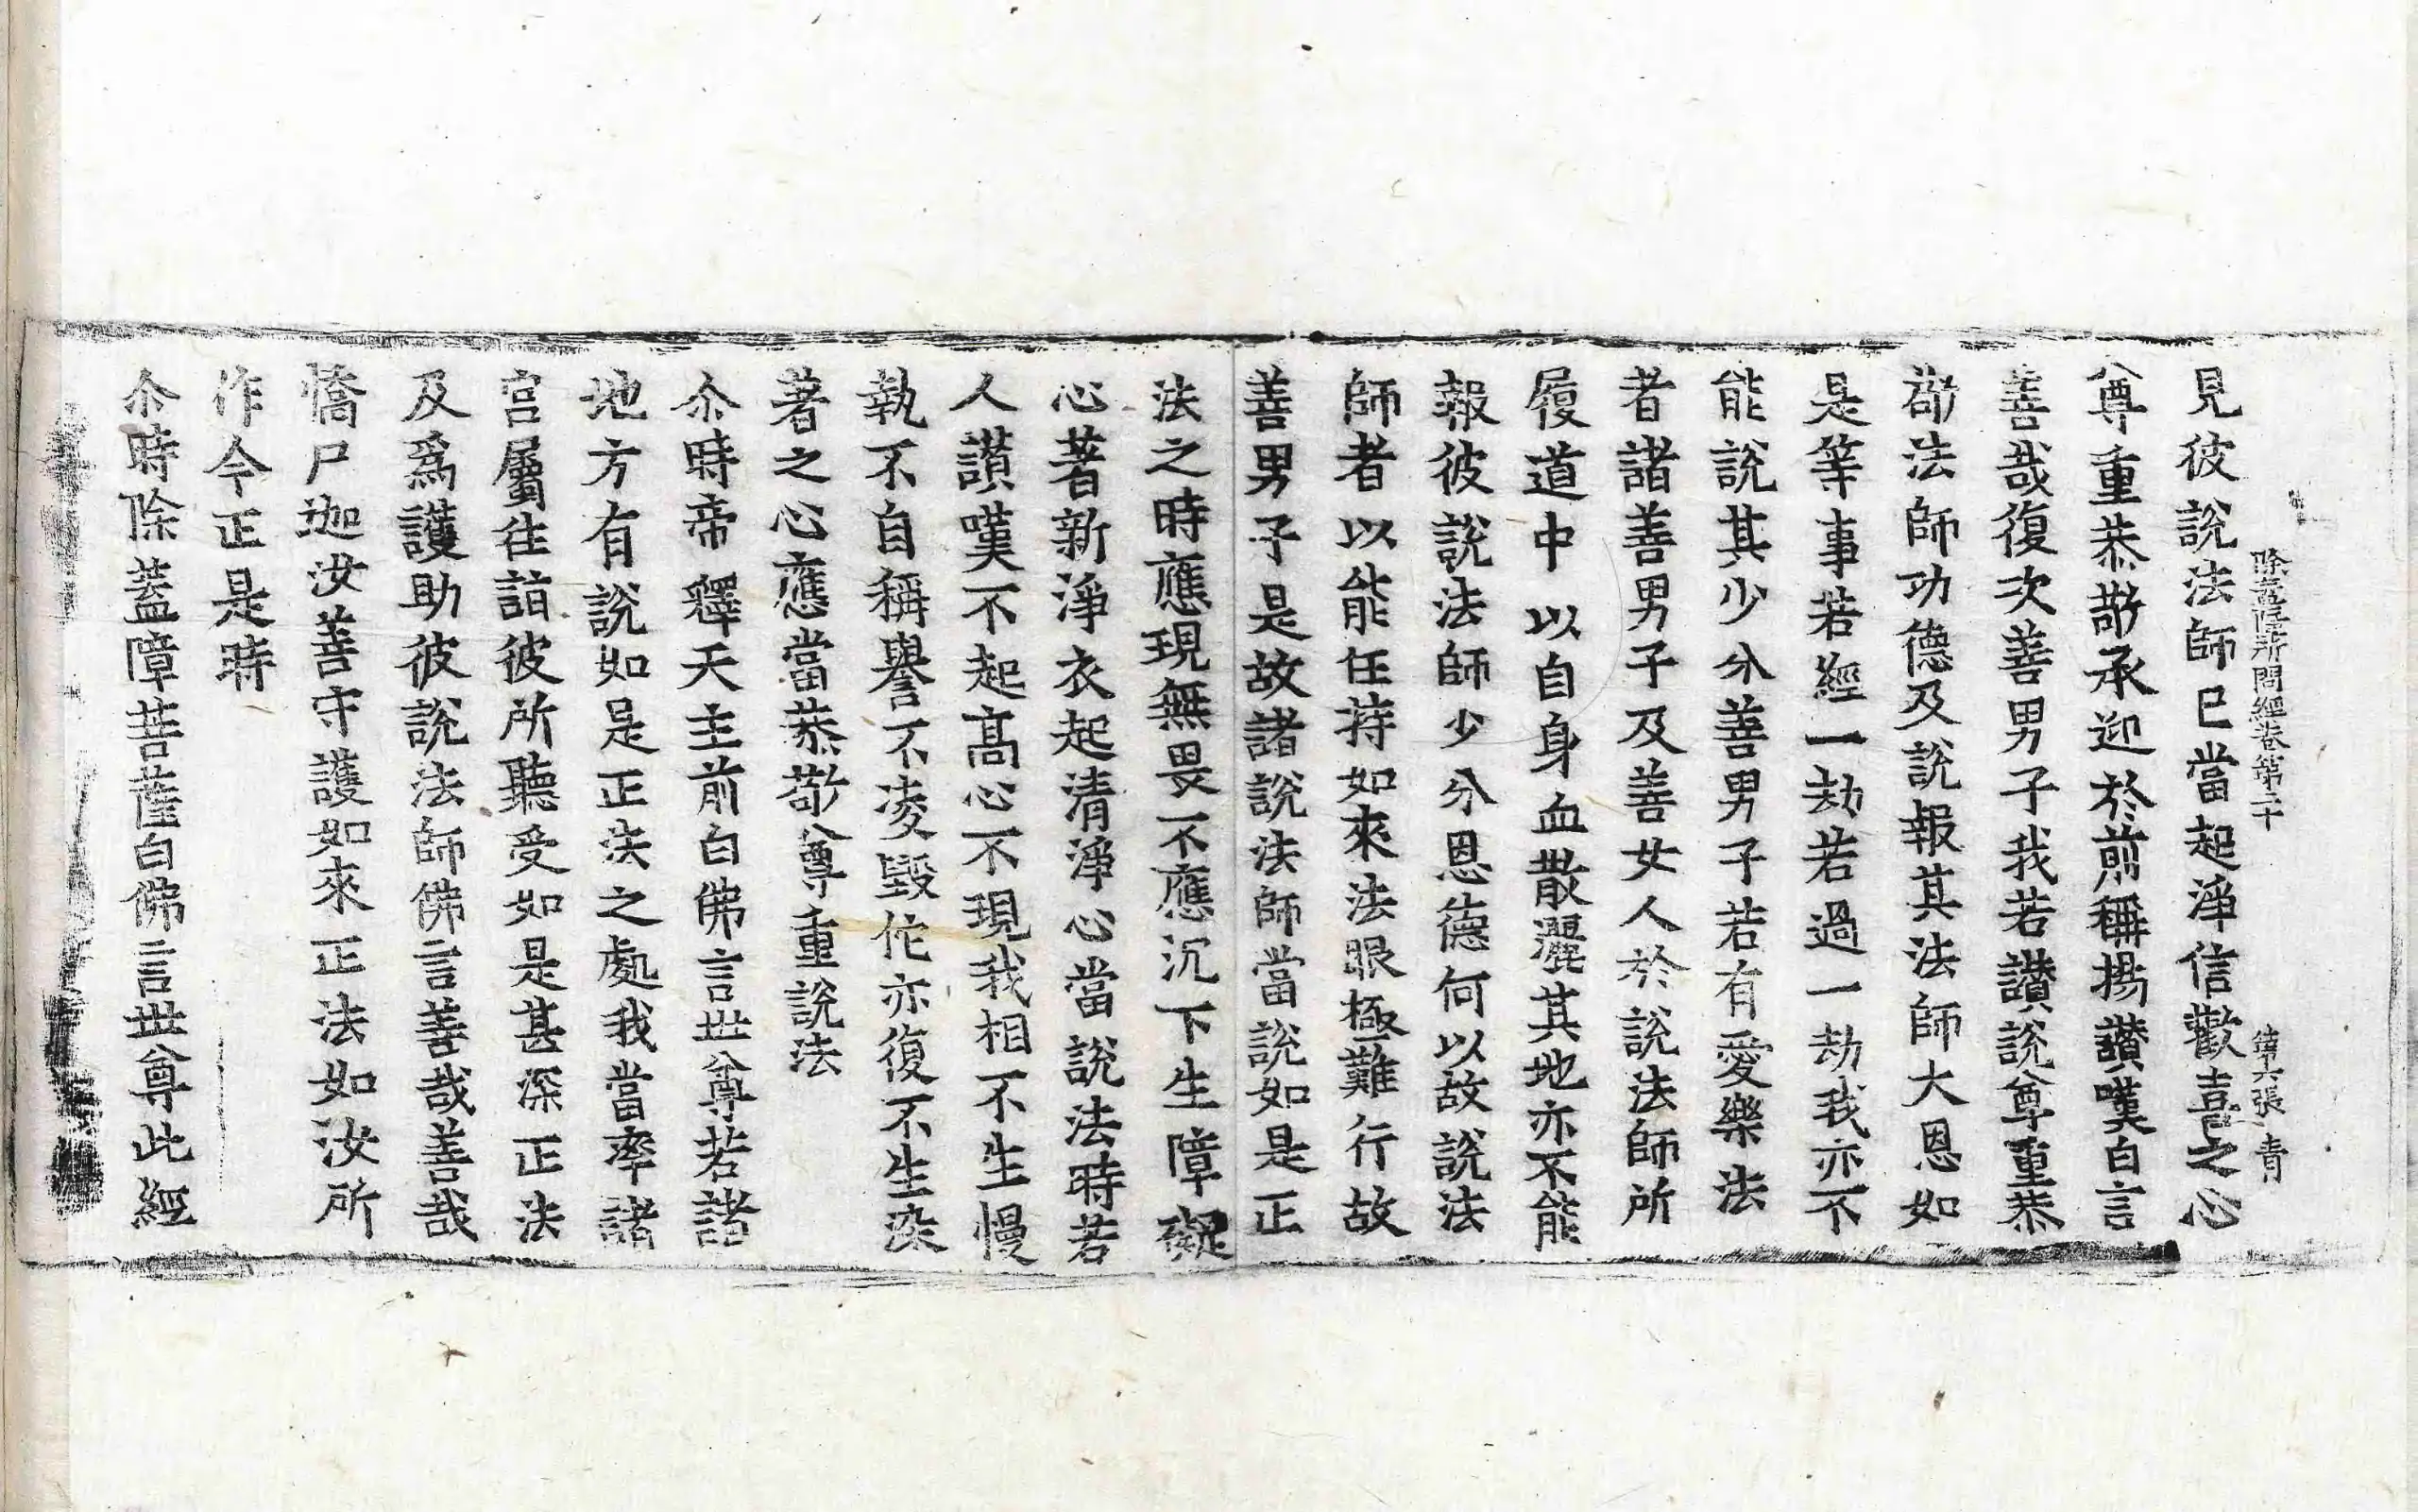 除蓋障所問經卷第二十 第六張 青
見彼說法師已當起淨信歡喜之心
尊重恭敬承迎於前稱揚讃嘆白言
善哉復次善男子我若讃說尊重恭
敬法師功德及說報其法師大恩如
是等事若經一劫若過一劫我亦不
能說其少分善男子若有愛樂法
者諸善男子及善女人於說法師所
履道中以自身血散灑其地亦不能
報彼說法師少分恩德何以故說法
師者以能任持如來法眼極難行故
善男子是故諸說法師當說如是正
法之時應現無畏不應沉下生障礙
心著新淨衣起清淨心當說法時若
人讃嘆不起高心不現我相不生慢
執不自稱譽不凌毀他亦復不生染
著之心應當恭敬尊重說法
尒時帝釋天主前白佛言世尊若諸
地方有說如是正法之處我當率諸
官屬往詣彼所聽受如是甚深正法
及爲護助彼說法師佛言善哉善哉
憍尸迦汝善守護如來正法如汝所
作今正是時
尒時除蓋障菩薩白佛言世尊此經